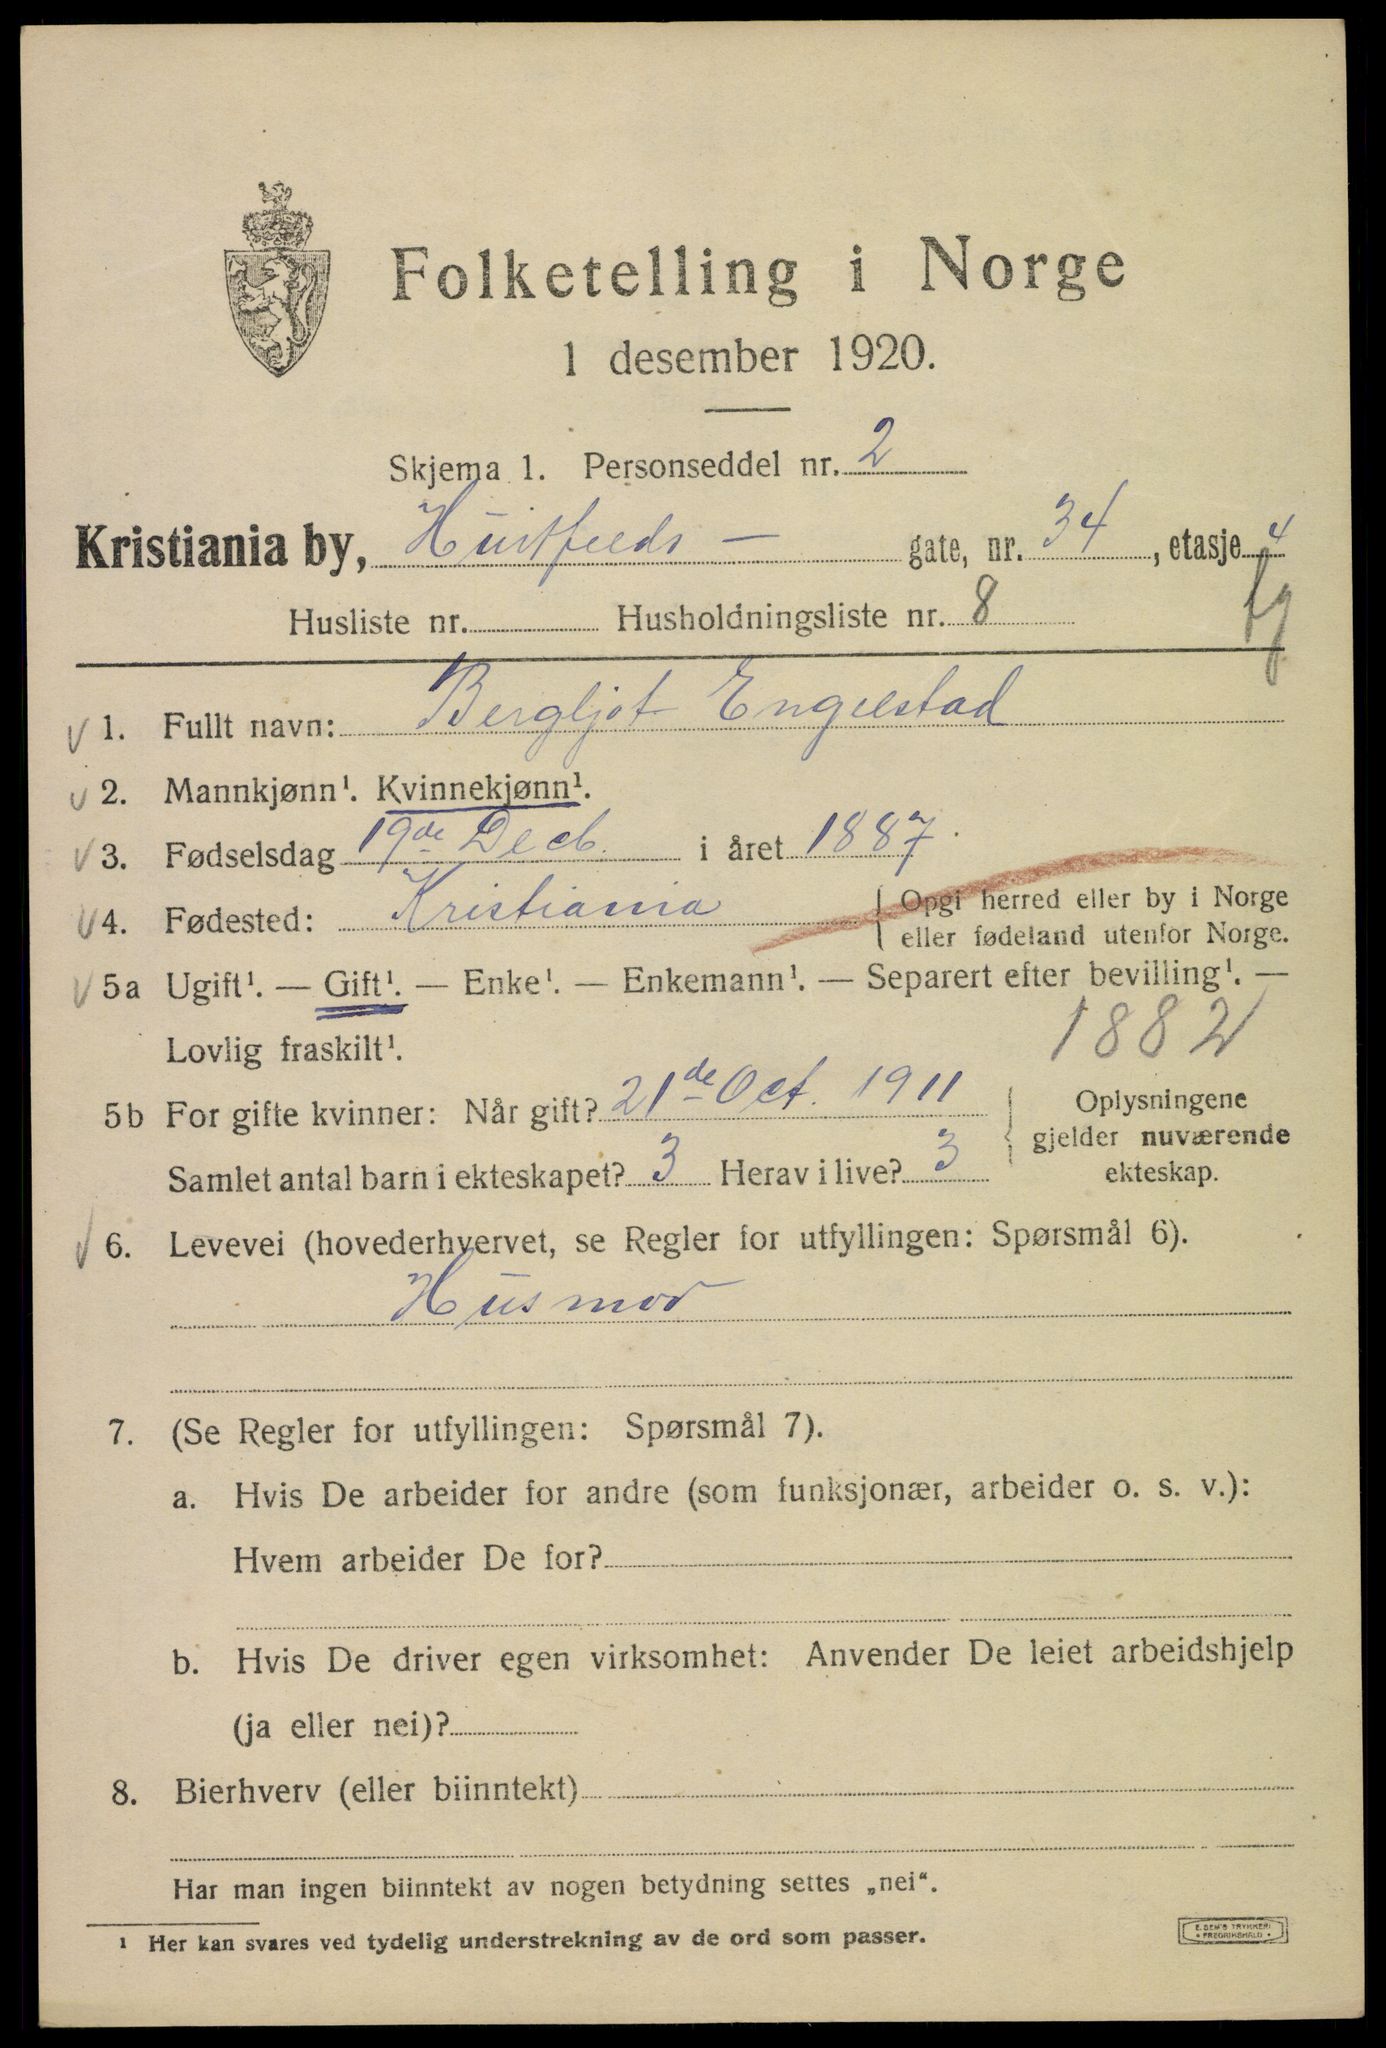 Folketelling i Norge
1 desember 1920.
Skjema 1. Personseddel nr. 2
Kristiania by, Huitfelds – gate, nr. 34, etasje 4
Husliste nr. Husholdningsliste nr. 8
1. Fullt navn: Bergljot Engelstad
2. Mannkjønn¹. Kvinnekjønn¹.
3. Fødselsdag 19de Decb. i året 1887
4. Fødested: Kristiania { Opgi herred eller by i Norge
eller fødeland utenfor Norge.
5a Ugift¹. — Gift¹. — Enke¹. — Enkemann¹. — Separert efter bevilling¹. —
Lovlig fraskilt¹. 1882
5b For gifte kvinner: Når gift? 21de Oct. 1911
Samlet antal barn i ekteskapet? 3 Herav i live? 3
Oplysningene
gjelder nuværende
ekteskap.
6. Levevei (hovederhvervet, se Regler for utfyllingen: Spørsmål 6).
Husmor
7. (Se Regler for utfyllingen: Spørsmål 7).
a. Hvis De arbeider for andre (som funksjonær, arbeider o. s. v.):
Hvem arbeider De for?
b. Hvis De driver egen virksomhet: Anvender De leiet arbeidshjelp
(ja eller nei)?
8. Bierhverv (eller biinntekt)
Har man ingen biinntekt av nogen betydning settes „nei“.
¹ Her kan svares ved tydelig understrekning av de ord som passer.
E. SEM'S TRYKKERI
• FREDRIKSHALD •